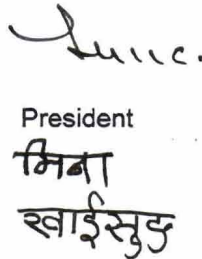 President
मिना
ख्वाई सुङ